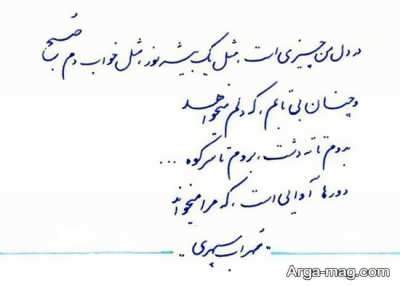 در دل من چیزی است، مثل یک بیشه نور، مثل خواب دم صبح
و چنان بی تابم، که دلم میخواهد
بدوم تا ته دشت، بروم تا سر کوه ...
دورها آوایی است، که مرا میخواند
"سهراب سپهری"
Arga-mag.com